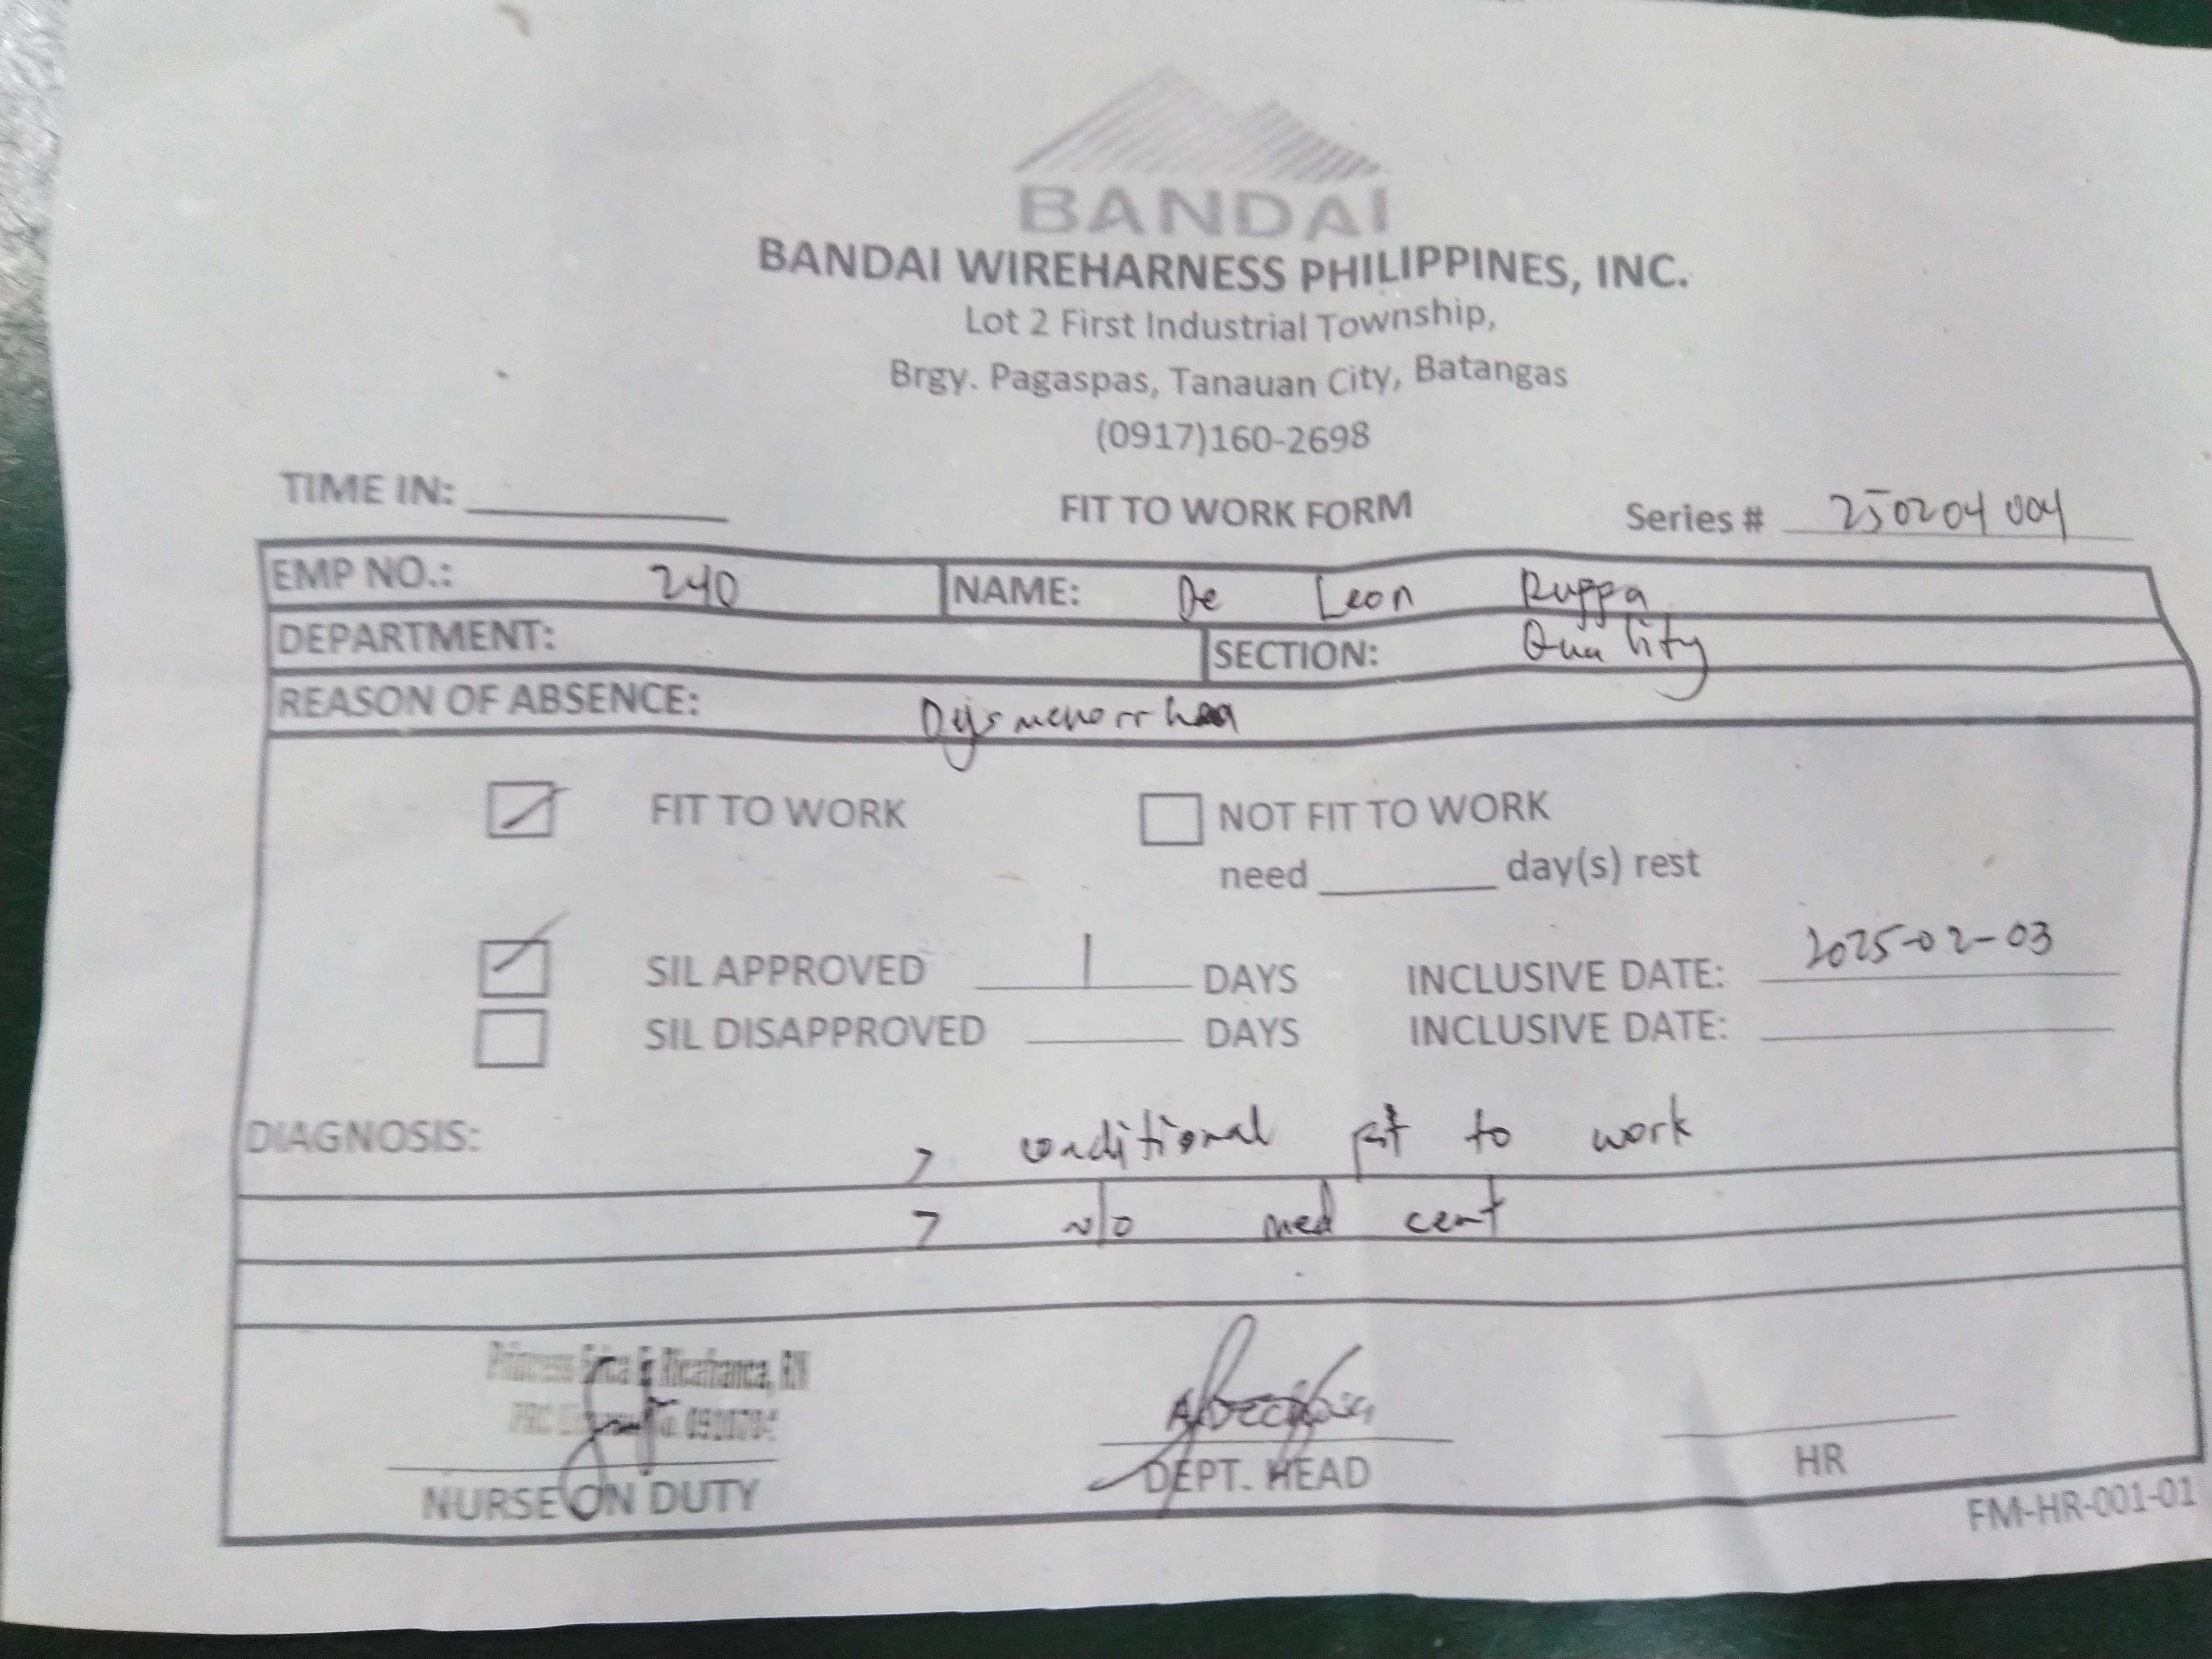 BANDAI
BANDAI WIREHARNESS PHILIPPINES, INC.
Lot 2 First Industrial Township,
Brgy. Pagaspas, Tanauan City, Batangas
(0917)160-2698
TIME IN: FIT TO WORK FORM Series # 250204004
EMP NO.: 240 NAME: De Leon Ruppa
DEPARTMENT: SECTION: Quality
REASON OF ABSENCE: Dysmenorrhea
FIT TO WORK NOT FIT TO WORK
need day(s) rest
SIL APPROVED 1 DAYS INCLUSIVE DATE: 2025-02-03
SIL DISAPPROVED DAYS INCLUSIVE DATE:
DIAGNOSIS: > conditional fit to work
> w/o med cert
Ricafranca, RN
PRC
NURSE ON DUTY DEPT. HEAD HR
FM-HR-001-01